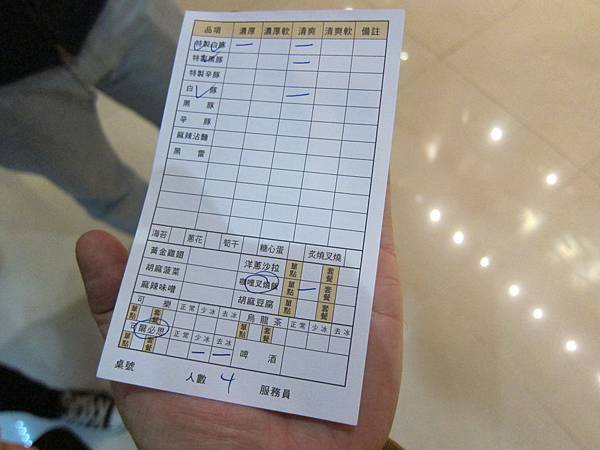 品項 濃厚 濃厚軟 清爽 清爽軟 備註
特製白豚 一 一
特製黑豚 一
特製辛豚
白豚 一
黑豚
辛豚
麻辣沾麵
黑蕾
海苔 蔥花 筍干 糖心蛋 炙燒叉燒
黃金雞翅 洋蔥沙拉 單點 套餐
胡麻菠菜 嘰哩叉燒飯 單點 套餐 一
麻辣味噌 胡麻豆腐 單點 套餐
可樂 單點 套餐 正常 少冰 去冰 烏龍茶 單點 套餐 正常 少冰 去冰
可爾必思 單點 套餐 正常 少冰 去冰 一 一 啤酒
桌號 人數 4 服務員